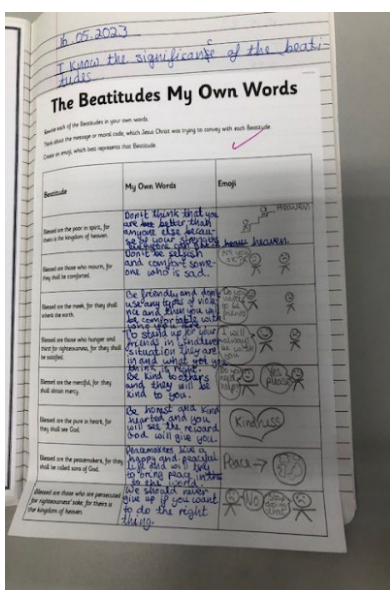 16.05.2023
I know the significance of the beati-
tudes
The Beatitudes My Own Words
Rewrite each of the Beatitudes in your own words.
Think about the message or moral code, which Jesus Christ was trying to convey with each Beatitude.
Create an emoji, which best represents that Beatitude.
Beatitude
My Own Words
Emoji
Blessed are the poor in spirit, for
theirs is the kingdom of heaven.
Don't think that you
are better than
anyone else becau-
se of your strengths
everyone can
heaven.
Blessed are those who mourn, for
they shall be comforted.
Don't be selfish
and comfort some-
one who is sad.
Blessed are the meek, for they shall
inherit the earth.
Be friendly and don't
use any types of viole-
nce and then you will
be comfortable with
who you are
Blessed are those who hunger and
thirst for righteousness, for they shall
be satisfied.
To stand up for your
friends in
situation they are
in and what you
think is right.
I will
always
be with
you
Blessed are the merciful, for they
shall obtain mercy.
Be kind to others
and they will be
kind to you.
Do you
need
help?
Yes
please
Blessed are the pure in heart, for
they shall see God.
Be honest and kind
hearted and you
will see the reward
God will give you.
Kindness
Blessed are the peacemakers, for they
shall be called sons of God.
Peacemakers live a
happy and peaceful
life and will try
to bring peace into
to the world.
Peace →
Blessed are those who are persecuted
for righteousness' sake, for theirs is
the kingdom of heaven.
We should never
give up if you want
to do the right
thing.
No